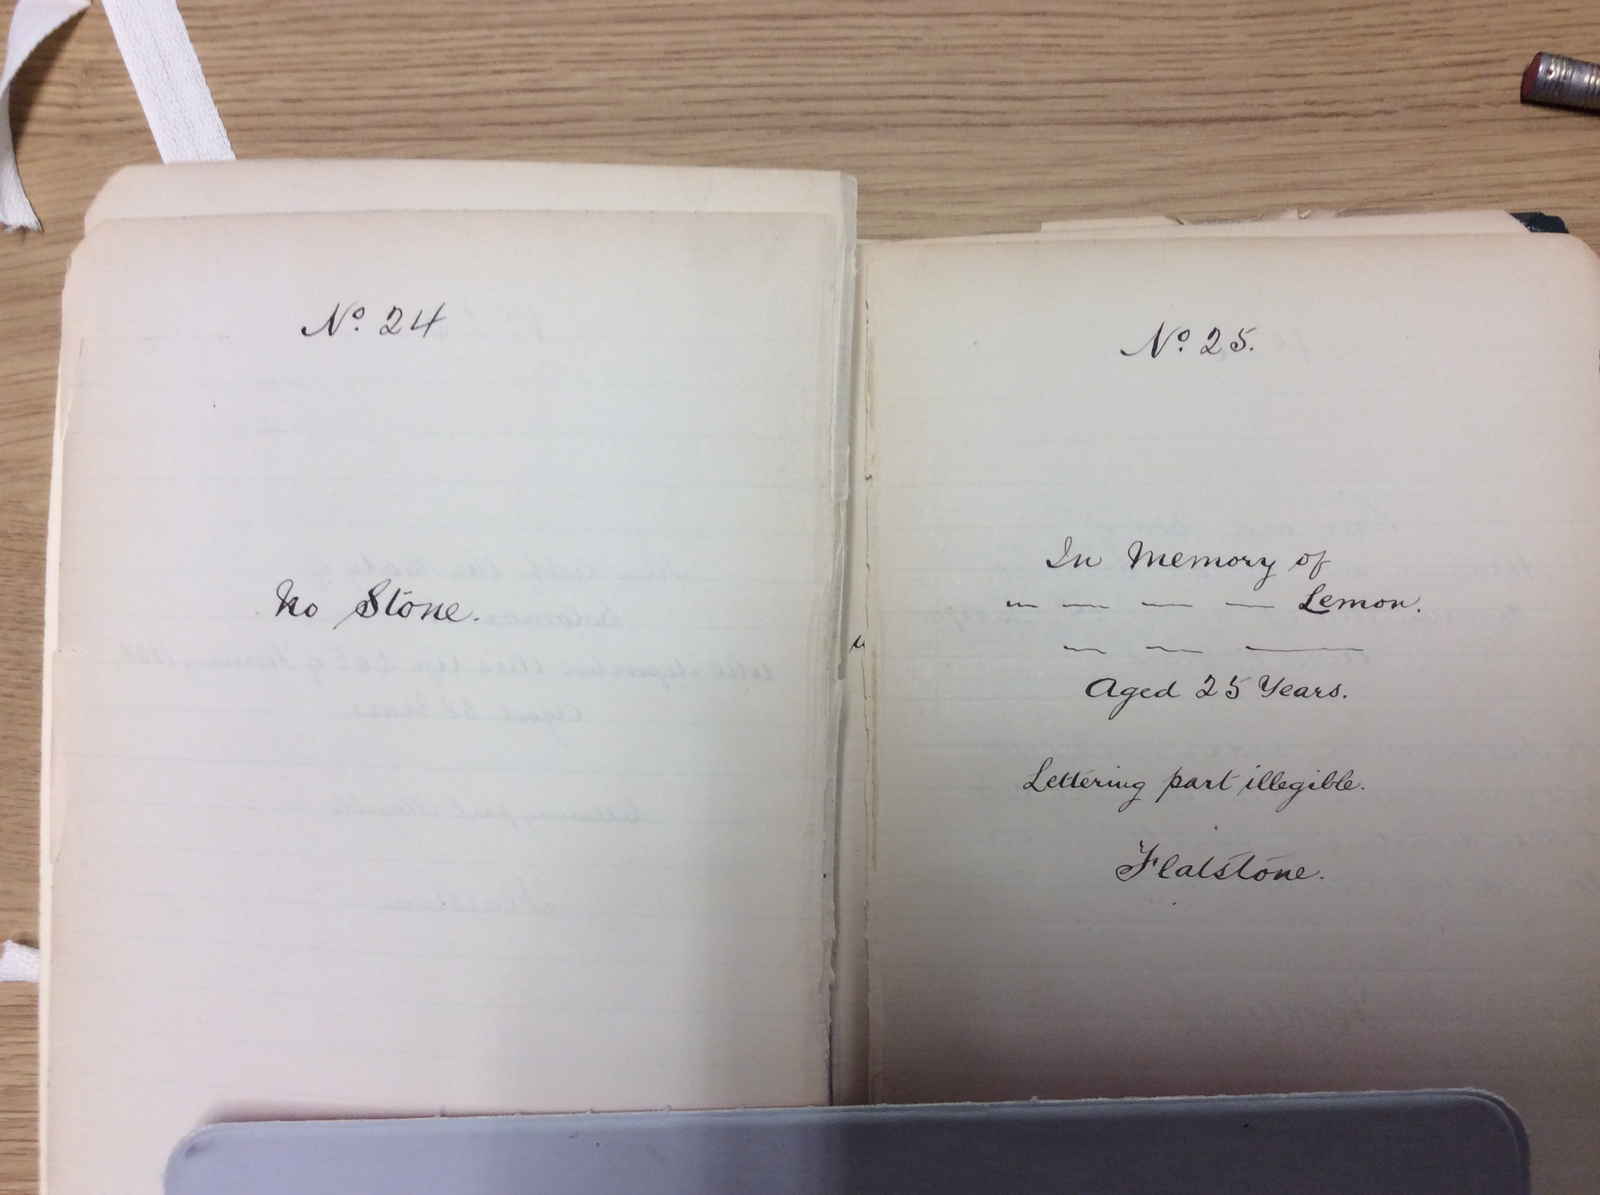 No. 24
No Stone.
No. 25.
In Memory of
— — — — Lemon.
— — —
Aged 25 Years.
Lettering part illegible.
Flatstone.